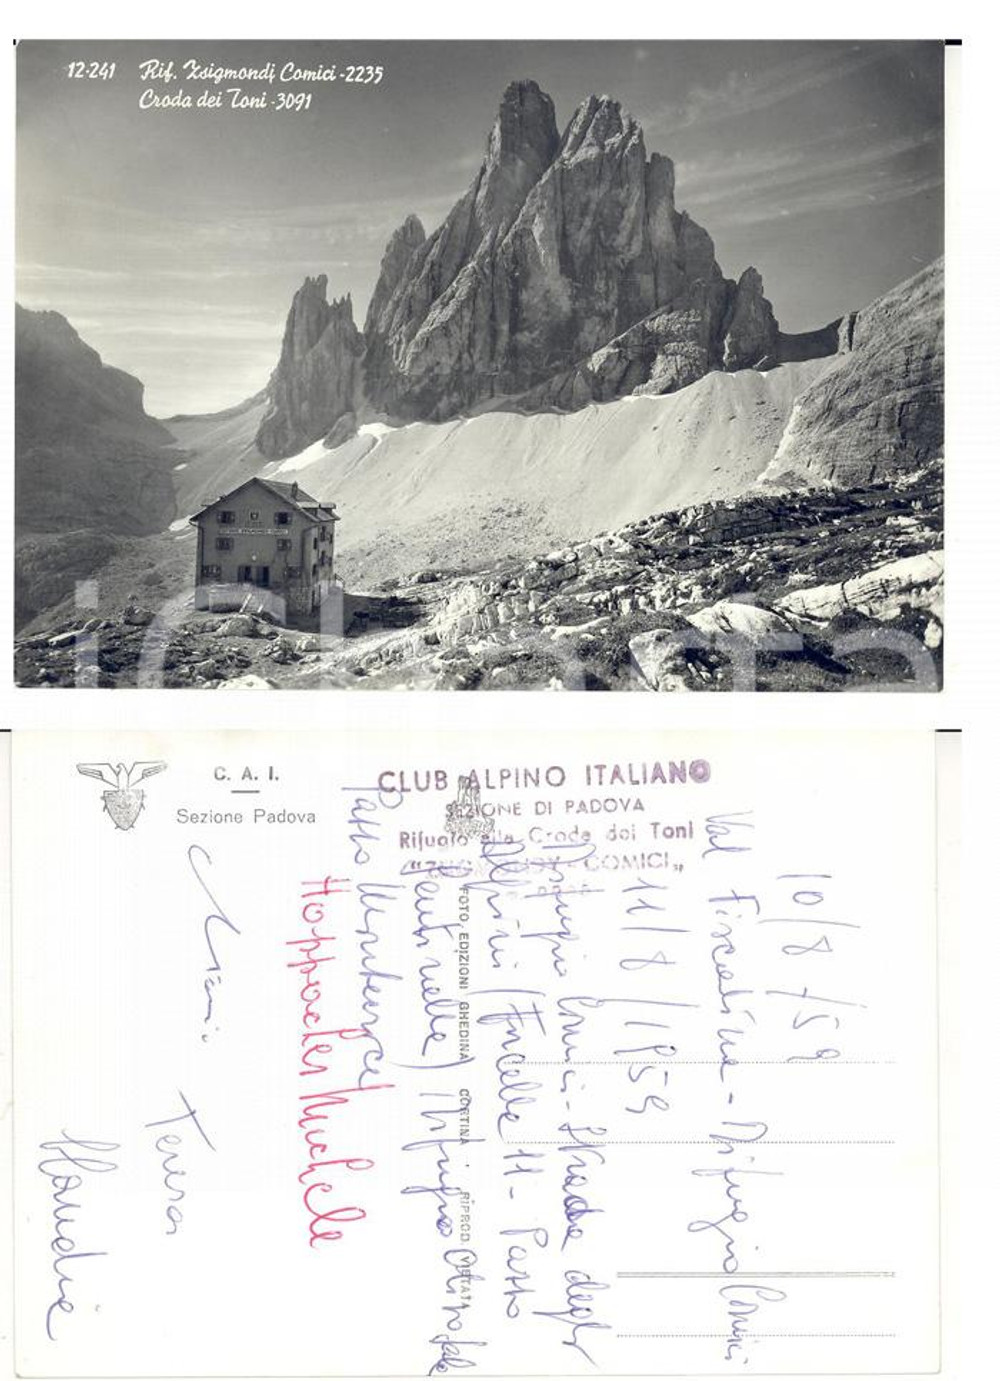 12-241 Rif. Zsigmondj Comici -2235
Croda dei Toni -3091
C. A. I.
Sezione Padova
CLUB ALPINO ITALIANO
SEZIONE DI PADOVA
Rifugio alla Croda dei Toni
"ZSIGMONDY - COMICI"
FOTO EDIZIONI GHEDINA CORTINA RIPROD. VIETATA
10/8/59
Val Fiscalina - Rifugio Comici
11/8/1959
Rifugio Comici - Strada degli
Alpini (Forcella 11 - Passo
Sentinella) Rifugio Olivo Sala
Passo Montecroce
Hoppacher Michele
Teresa